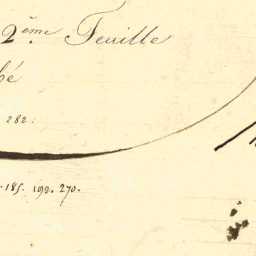 2ème Feuille
bé
282.
185. 199. 270.